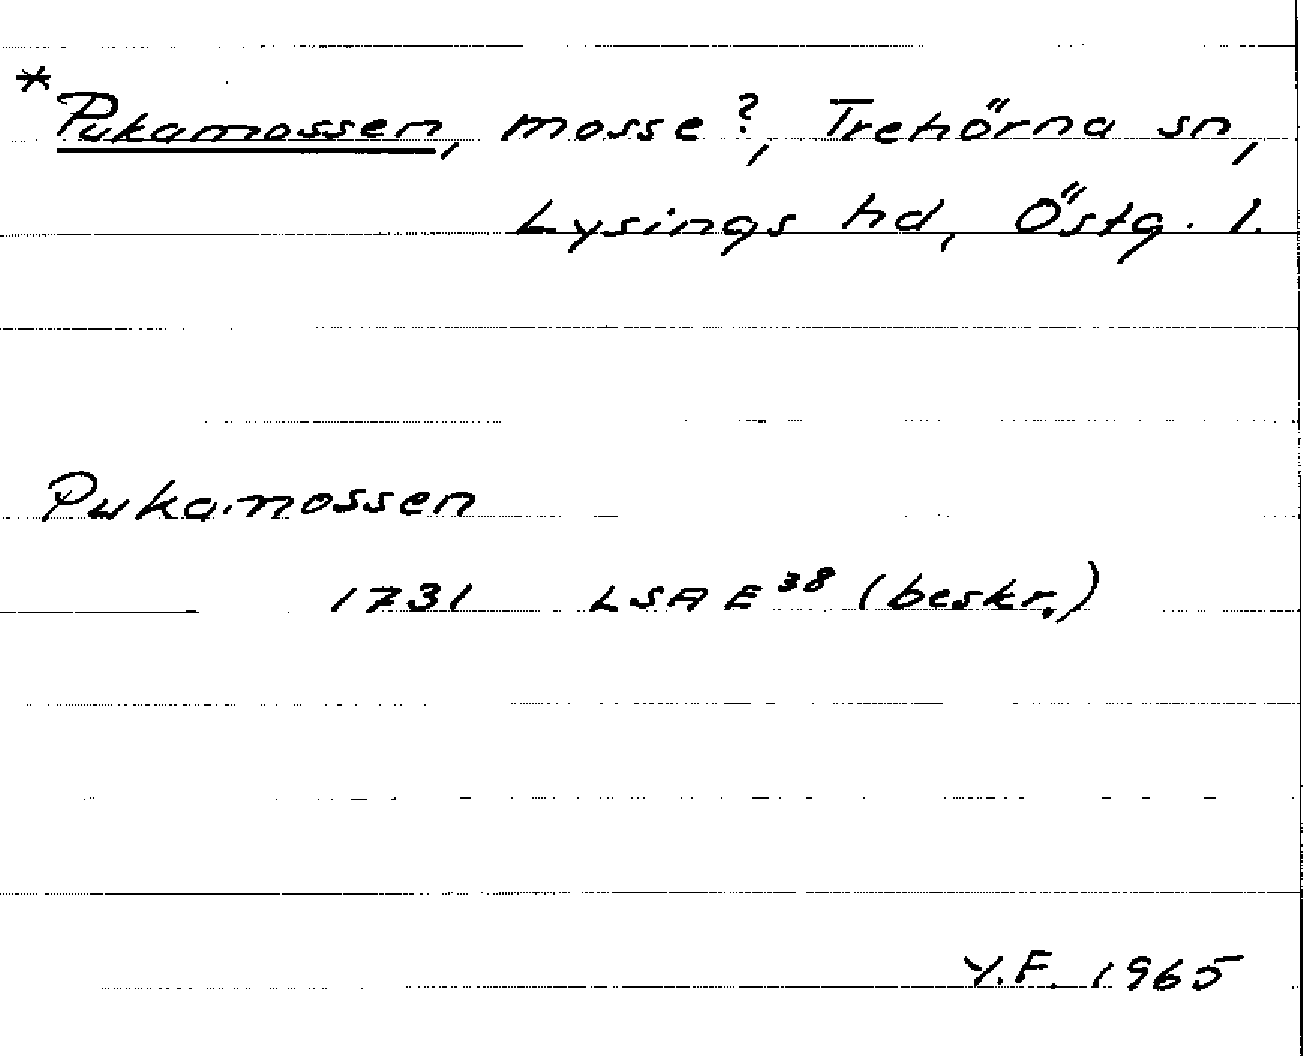 *Pukamossen, mosse?, Trehörna sn,
Lysings hd, Östg. l.
Pukamossen
1731 LSA E 38 (beskr.)
Y.F. 1965